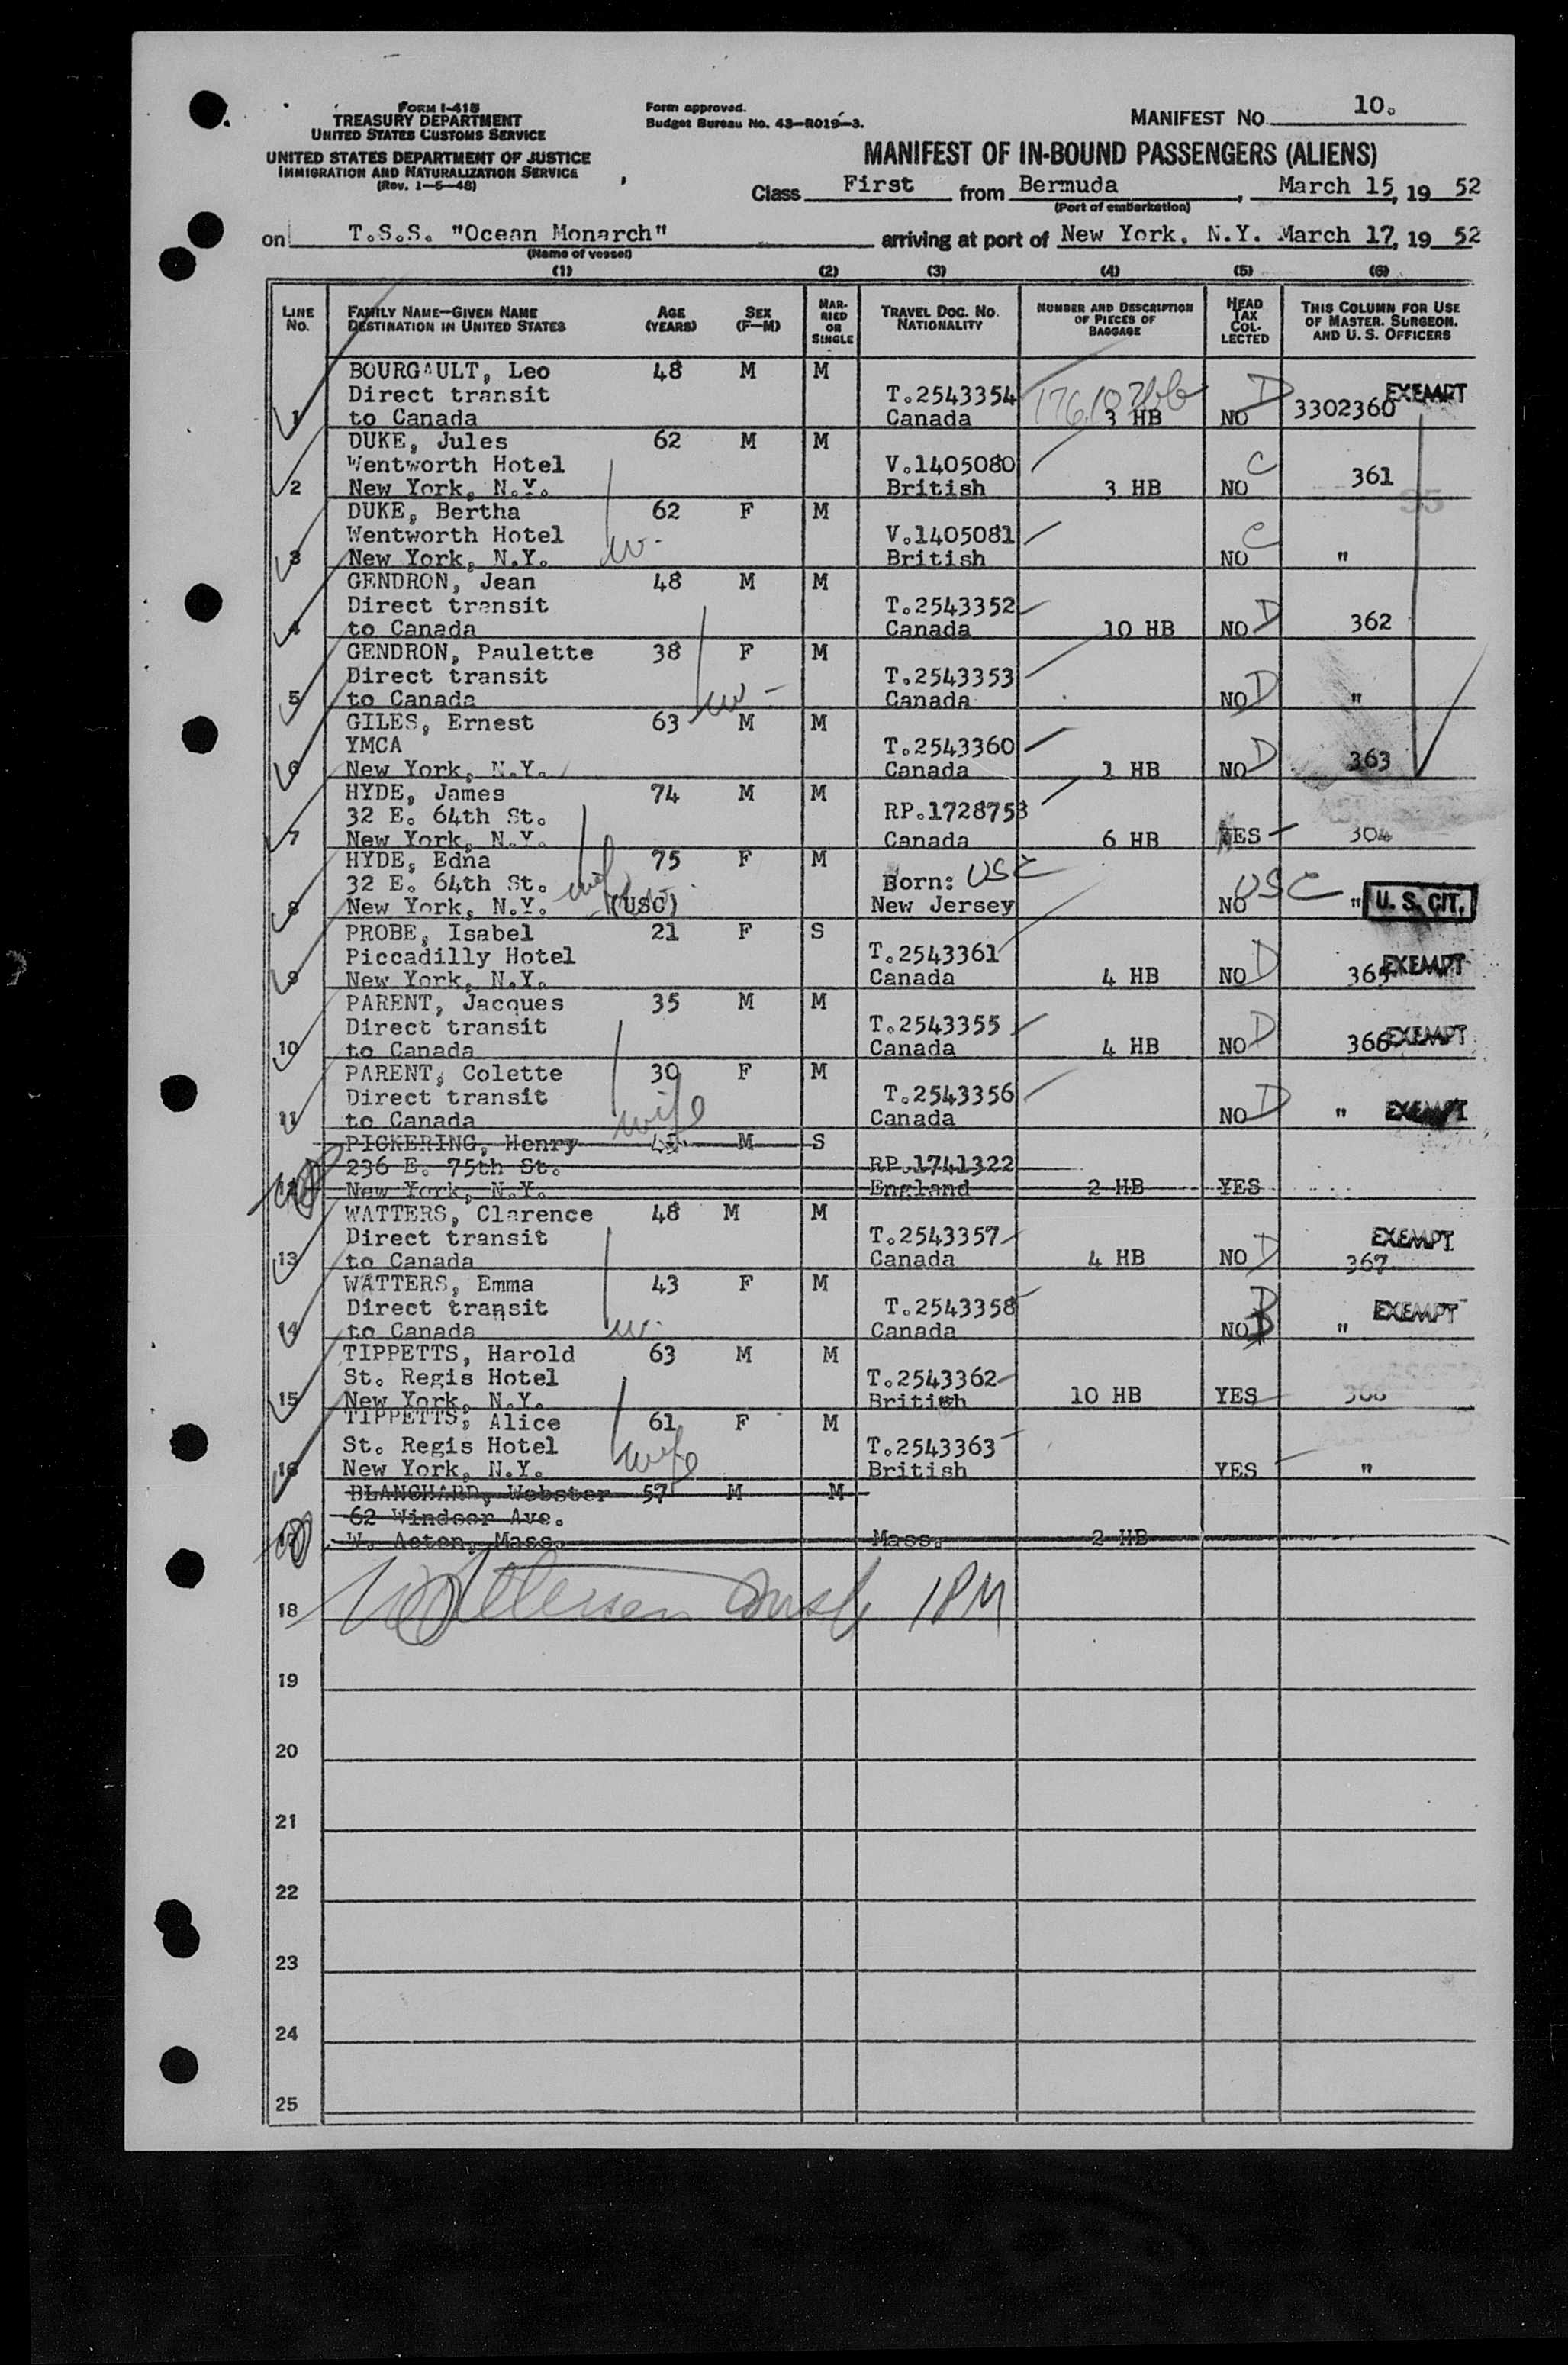 FORM I-418
TREASURY DEPARTMENT
UNITED STATES CUSTOMS SERVICE
UNITED STATES DEPARTMENT OF JUSTICE
IMMIGRATION AND NATURALIZATION SERVICE
(Rev. 1-5-48)
Form approved.
Budget Bureau No. 43-R019-3.
MANIFEST NO. 10.
MANIFEST OF IN-BOUND PASSENGERS (ALIENS)
Class First from Bermuda, March 15, 19 52
(Port of embarkation)
on T.S.S. "Ocean Monarch" arriving at port of New York, N.Y. March 17, 19 52
(Name of vessel)
(1) (2) (3) (4) (5) (6)
LINE NO. FAMILY NAME-GIVEN NAME DESTINATION IN UNITED STATES AGE (YEARS) SEX (F-M) MARRIED OR SINGLE TRAVEL DOC. NO. NATIONALITY NUMBER AND DESCRIPTION OF PIECES OF BAGGAGE HEAD TAX COLLECTED THIS COLUMN FOR USE OF MASTER, SURGEON, AND U. S. OFFICERS
BOURGAULT, Leo 48 M M
Direct transit T.2543354 D EXEMPT
1 to Canada Canada 3 HB NO 3302360
DUKE, Jules 62 M M
Wentworth Hotel V.1405080 C 361
2 New York, N.Y. British 3 HB NO
DUKE, Bertha 62 F M
Wentworth Hotel V.1405081 C
3 New York, N.Y. w. British NO "
GENDRON, Jean 48 M M
Direct transit T.2543352 D 362
4 to Canada Canada 10 HB NO
GENDRON, Paulette 38 F M
Direct transit T.2543353 D
5 to Canada w - Canada NO "
GILES, Ernest 63 M M
YMCA T.2543360 D 363
6 New York, N.Y. Canada 1 HB NO
HYDE, James 74 M M
32 E. 64th St. RP.1728753
7 New York, N.Y. Canada 6 HB YES 304
HYDE, Edna 75 F M
32 E. 64th St. wife Born: USC USC
8 New York, N.Y. (USC) New Jersey NO " U. S. CIT.
PROBE, Isabel 21 F S
Piccadilly Hotel T.2543361 D EXEMPT
9 New York, N.Y. Canada 4 HB NO 365
PARENT, Jacques 35 M M
Direct transit T.2543355 D EXEMPT
10 to Canada Canada 4 HB NO 366
PARENT, Colette 30 F M
Direct transit wife T.2543356 D
11 to Canada Canada NO " EXEMPT
PICKERING, Henry M S
236 E. 75th St. RP.1741322
New York, N.Y. England 2 HB YES
WATTERS, Clarence 48 M M
Direct transit T.2543357 D EXEMPT
13 to Canada Canada 4 HB NO 367
WATTERS, Emma 43 F M
Direct transit T.2543358 D EXEMPT
14 to Canada w. Canada NO "
TIPPETTS, Harold 63 M M
St. Regis Hotel T.2543362
15 New York, N.Y. British 10 HB YES
TIPPETTS, Alice 61 F M
St. Regis Hotel wife T.2543363
16 New York, N.Y. British YES "
BLANCHARD, Webster 57 M M
62 Windsor Ave.
W. Acton, Mass. Mass. 2 HB
18 1PM
19
20
21
22
23
24
25